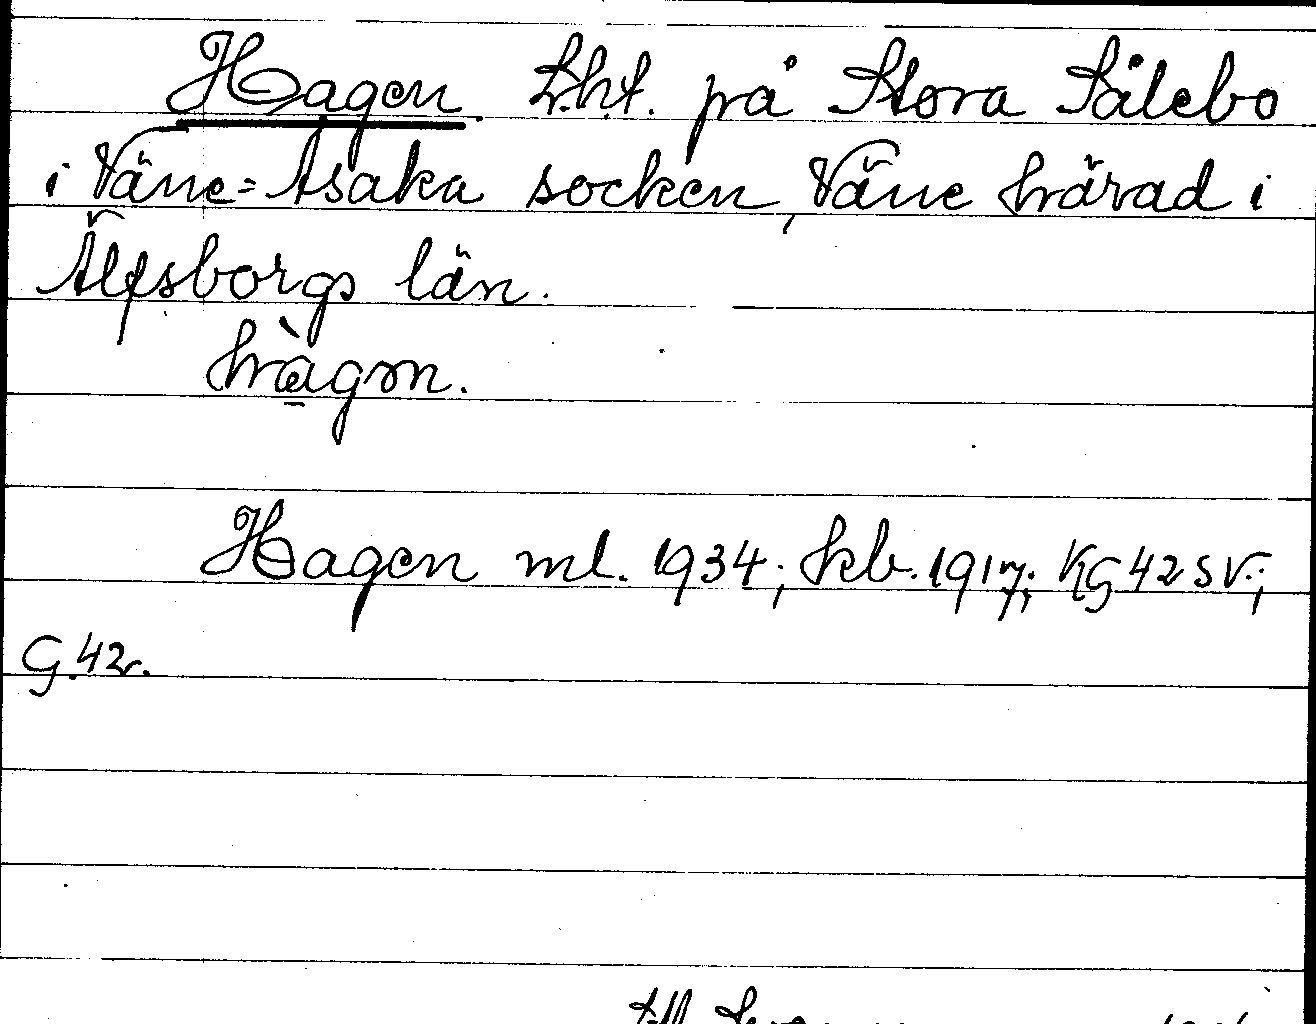 Hagen Lht. på Stora Sålebo
i Väne=Åsaka socken, Väne härad i
Älfsborgs län.
hàgən.
Hagen ml. 1934; kb. 1917; KG 42 SV.;
G.42.